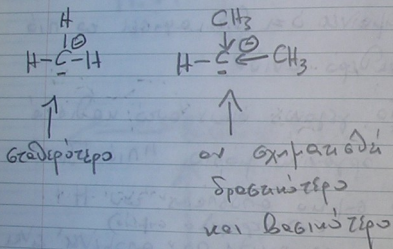 H CH₃
H-C⊖-H H-C⊖ CH₃
σταθερότερο αν σχηματισθεί
δραστικότερο
και βασικότερο